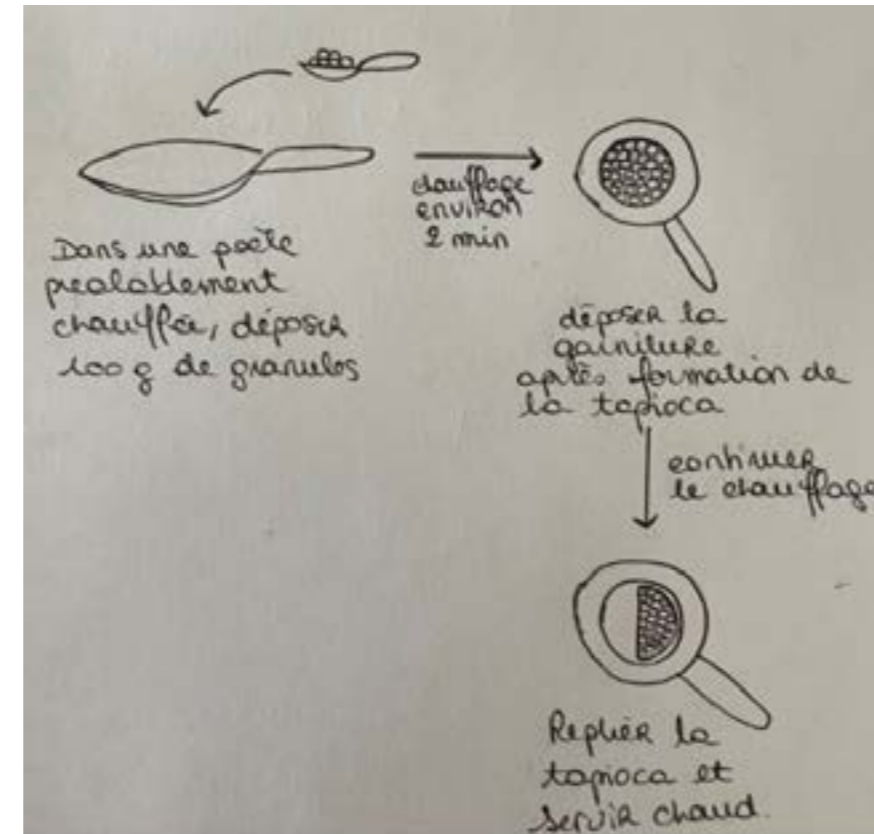 Dans une poêle
prealablement
chauffée, déposer
100 g de granulos
chauffage
environ
2 min
déposer la
gainiture
après formation de
la tapioca
continuer
le chauffage
Replier la
tapioca et
servir chaud.